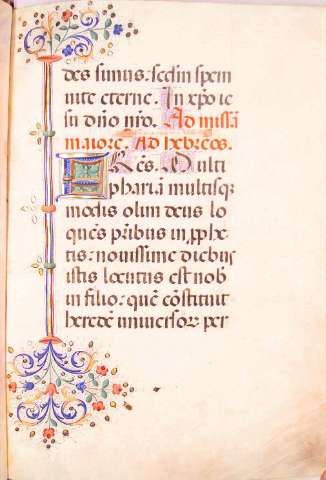 des sumus: sed in spem
vite eterne. In xp̄o ie
su dn̄o nr̄o. Ad missā
maiorē. Ad hebreos.
Fr̄es. Multi
phariā multisq̄
modis olim deus lo
quēs patribus in ꝓphe
tis: novissime diebus
istis locutus est nob
in filio: quē cōstituit
heredē universoꝝ per